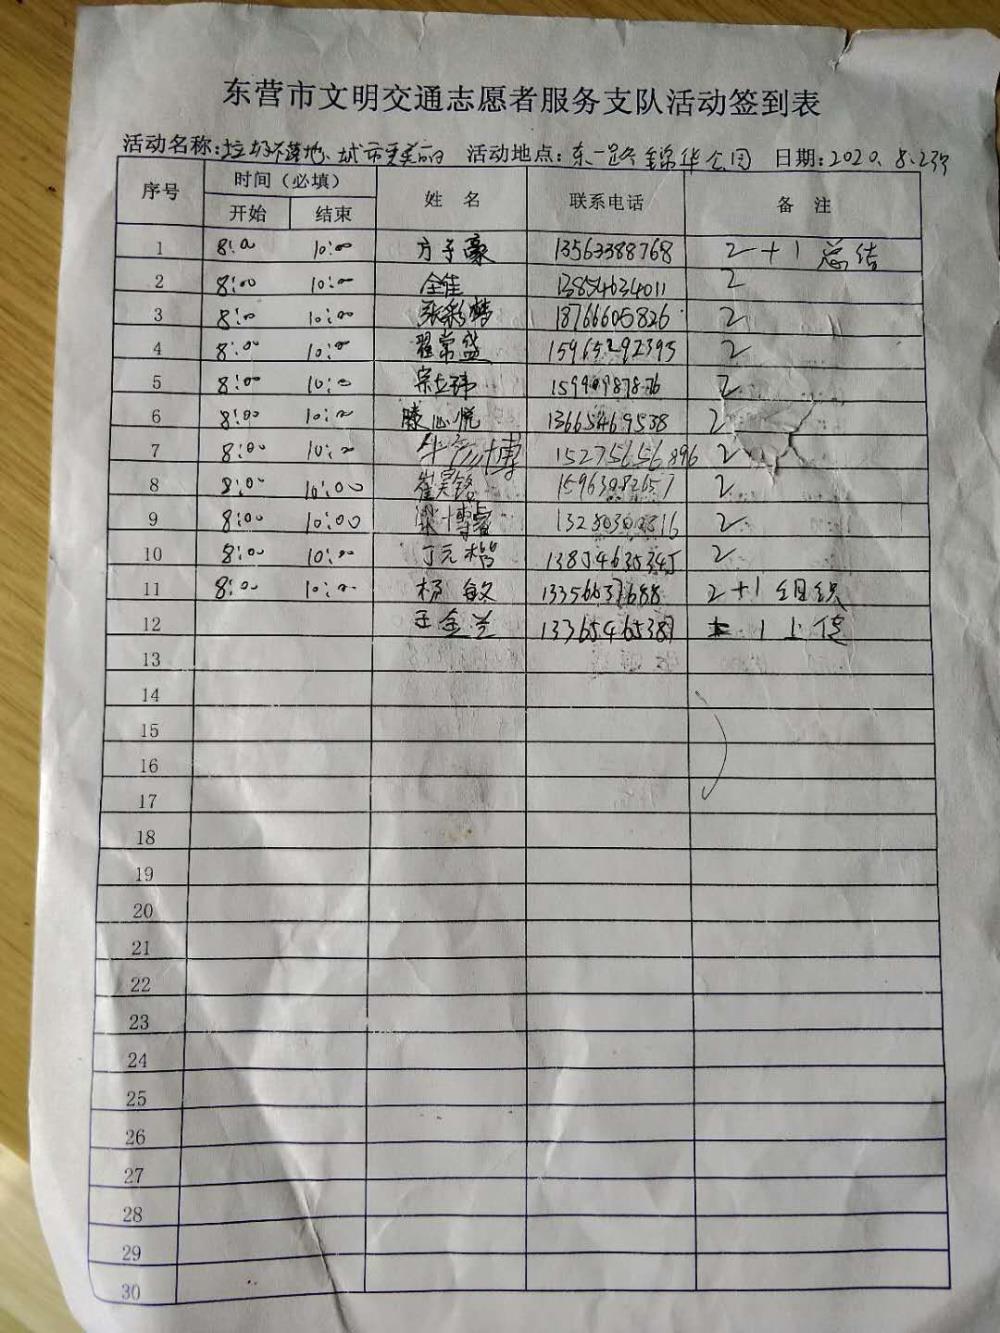 东营市文明交通志愿者服务支队活动签到表
活动名称:垃圾不落地、城市更美丽 活动地点:东一路锦华公园 日期:2020.8.23
序号 时间(必填) 姓名 联系电话 备注
开始 结束
1 8:00 10:00 方子豪 13563388768 2+1 总结
2 8:00 10:00 全佳 13854634011 2
3 8:00 10:00 18766605826 2
4 8:00 10:00 翟常盛 15965292395 2
5 8:00 10:00 宗立玮 2
6 8:00 10:00 滕心悦 13665469538 2
7 8:00 10:00 15275656896 2
8 8:00 10:00 15963082657 2
9 8:00 10:00 梁博睿 2
10 8:00 10:00 丁元楷 13854635345 2
11 8:00 10:00 杨敏 13356637688 2+1 组织
12 王金兰 1 上传
13
14
15
16
17
18
19
20
21
22
23
24
25
26
27
28
29
30